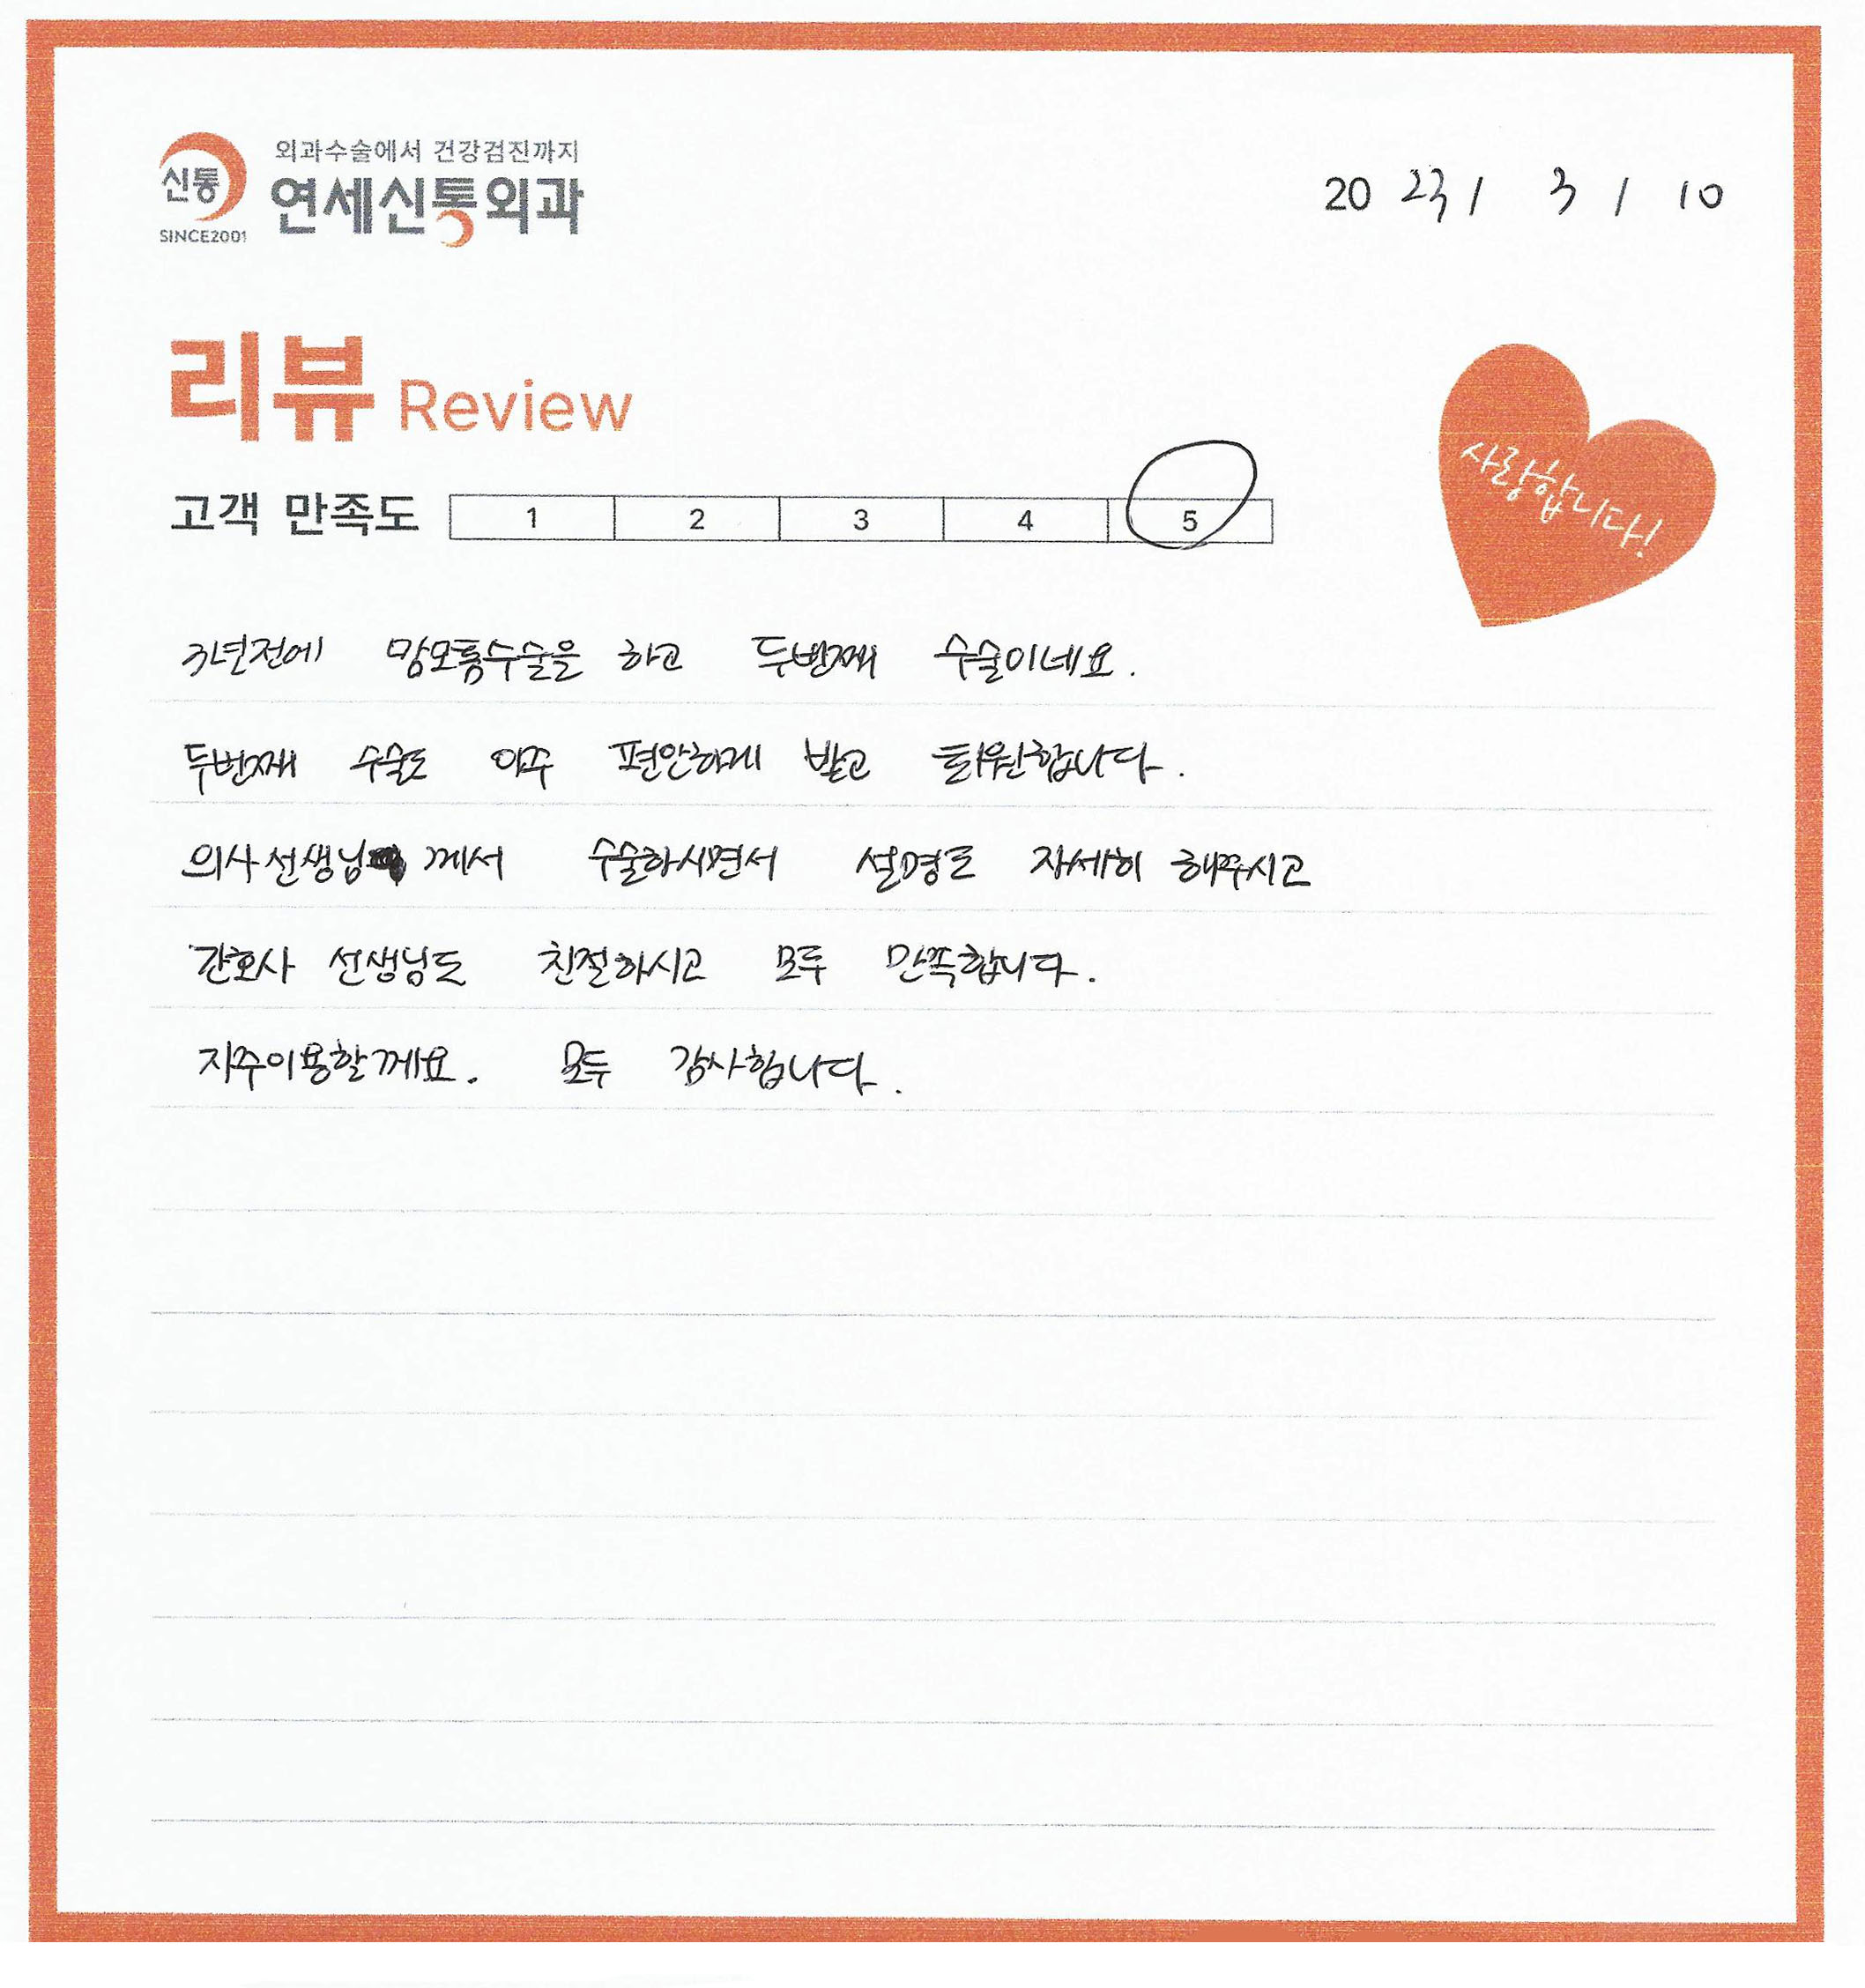 외과수술에서 건강검진까지
신통 연세신통외과
SINCE2001
20 23 / 3 / 10
리뷰 Review
고객 만족도 1 2 3 4 5
사랑합니다!
3년전에 맘모톰수술을 하고 두번째 수술이네요.
두번째 수술도 아주 편안하게 받고 퇴원합니다.
의사선생님 께서 수술하시면서 설명도 자세히 해주시고
간호사 선생님도 친절하시고 모두 만족합니다.
자주이용할께요. 모두 감사합니다.